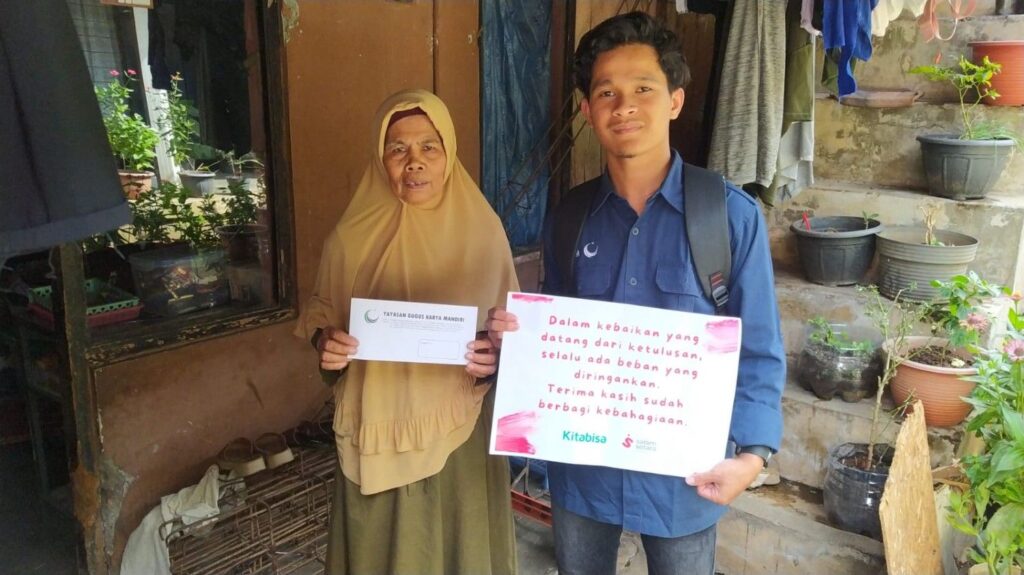 YAYASAN GUGUS KARYA MANDIRI
Dalam kebaikan yang
datang dari ketulusan,
selalu ada beban yang
diringankan.
Terima kasih sudah
berbagi kebahagiaan.
Kitabisa
salam
setara